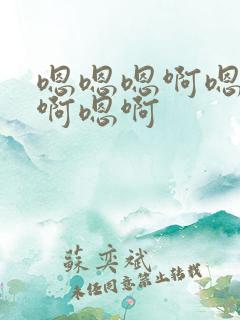 嗯嗯嗯啊嗯
啊嗯啊
蘇奕斌
未经同意禁止转载